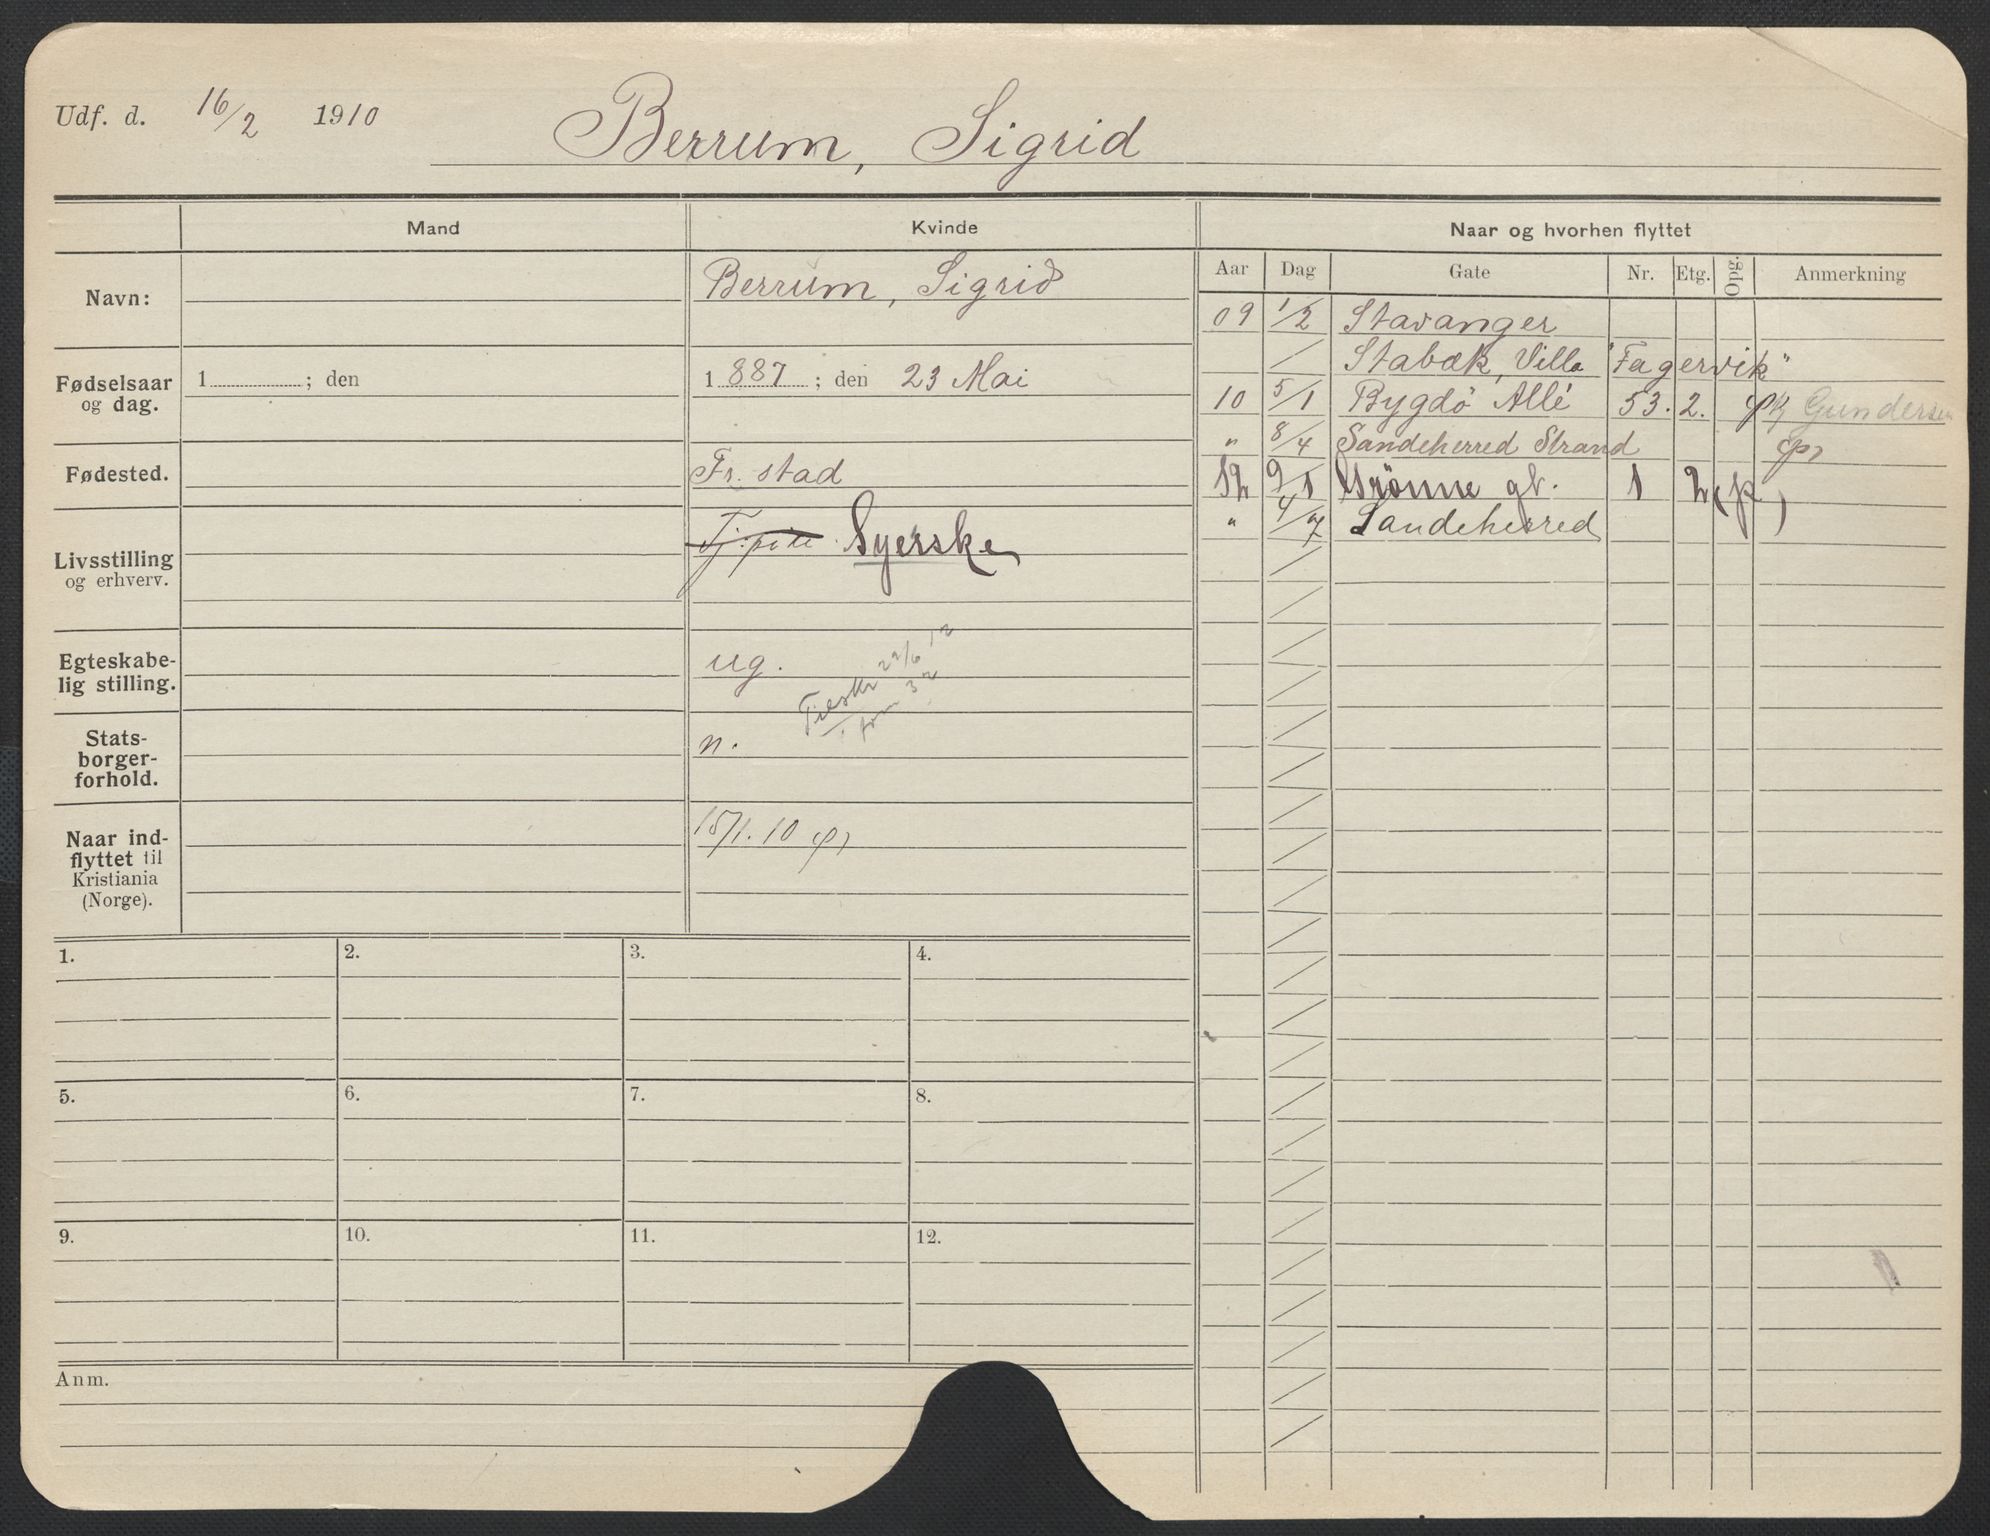 Udf. d. 16/2 1910
Berrum, Sigrid
Mand
Kvinde
Naar og hvorhen flyttet
Navn:
Berrum, Sigrid
Fødselsaar og dag.
1 ; den
1 887 ; den 23 Mai
Fødested.
Fr. stad
Livsstilling og erhverv.
Tj.pike Syerske
Egteskabe-
lig stilling.
ug.
29/6 12
32
Stats-
borger-
forhold.
n.
Naar ind-
flyttet til
Kristiania
(Norge).
15/1. 10 (p)
Aar Dag Gate Nr. Etg. Opg. Anmerkning
09 1/2 Stavanger
/ Stabæk, Villa "Fagervik"
10 5/1 Bygdö Allé 53. 2. Gundersen
" 8/4 Sandeherred Strand (p)
12 9/1 Grönne gt. 1 2 (p)
" 4/7 Sandeherred
1. 2. 3. 4.
5. 6. 7. 8.
9. 10. 11. 12.
Anm.